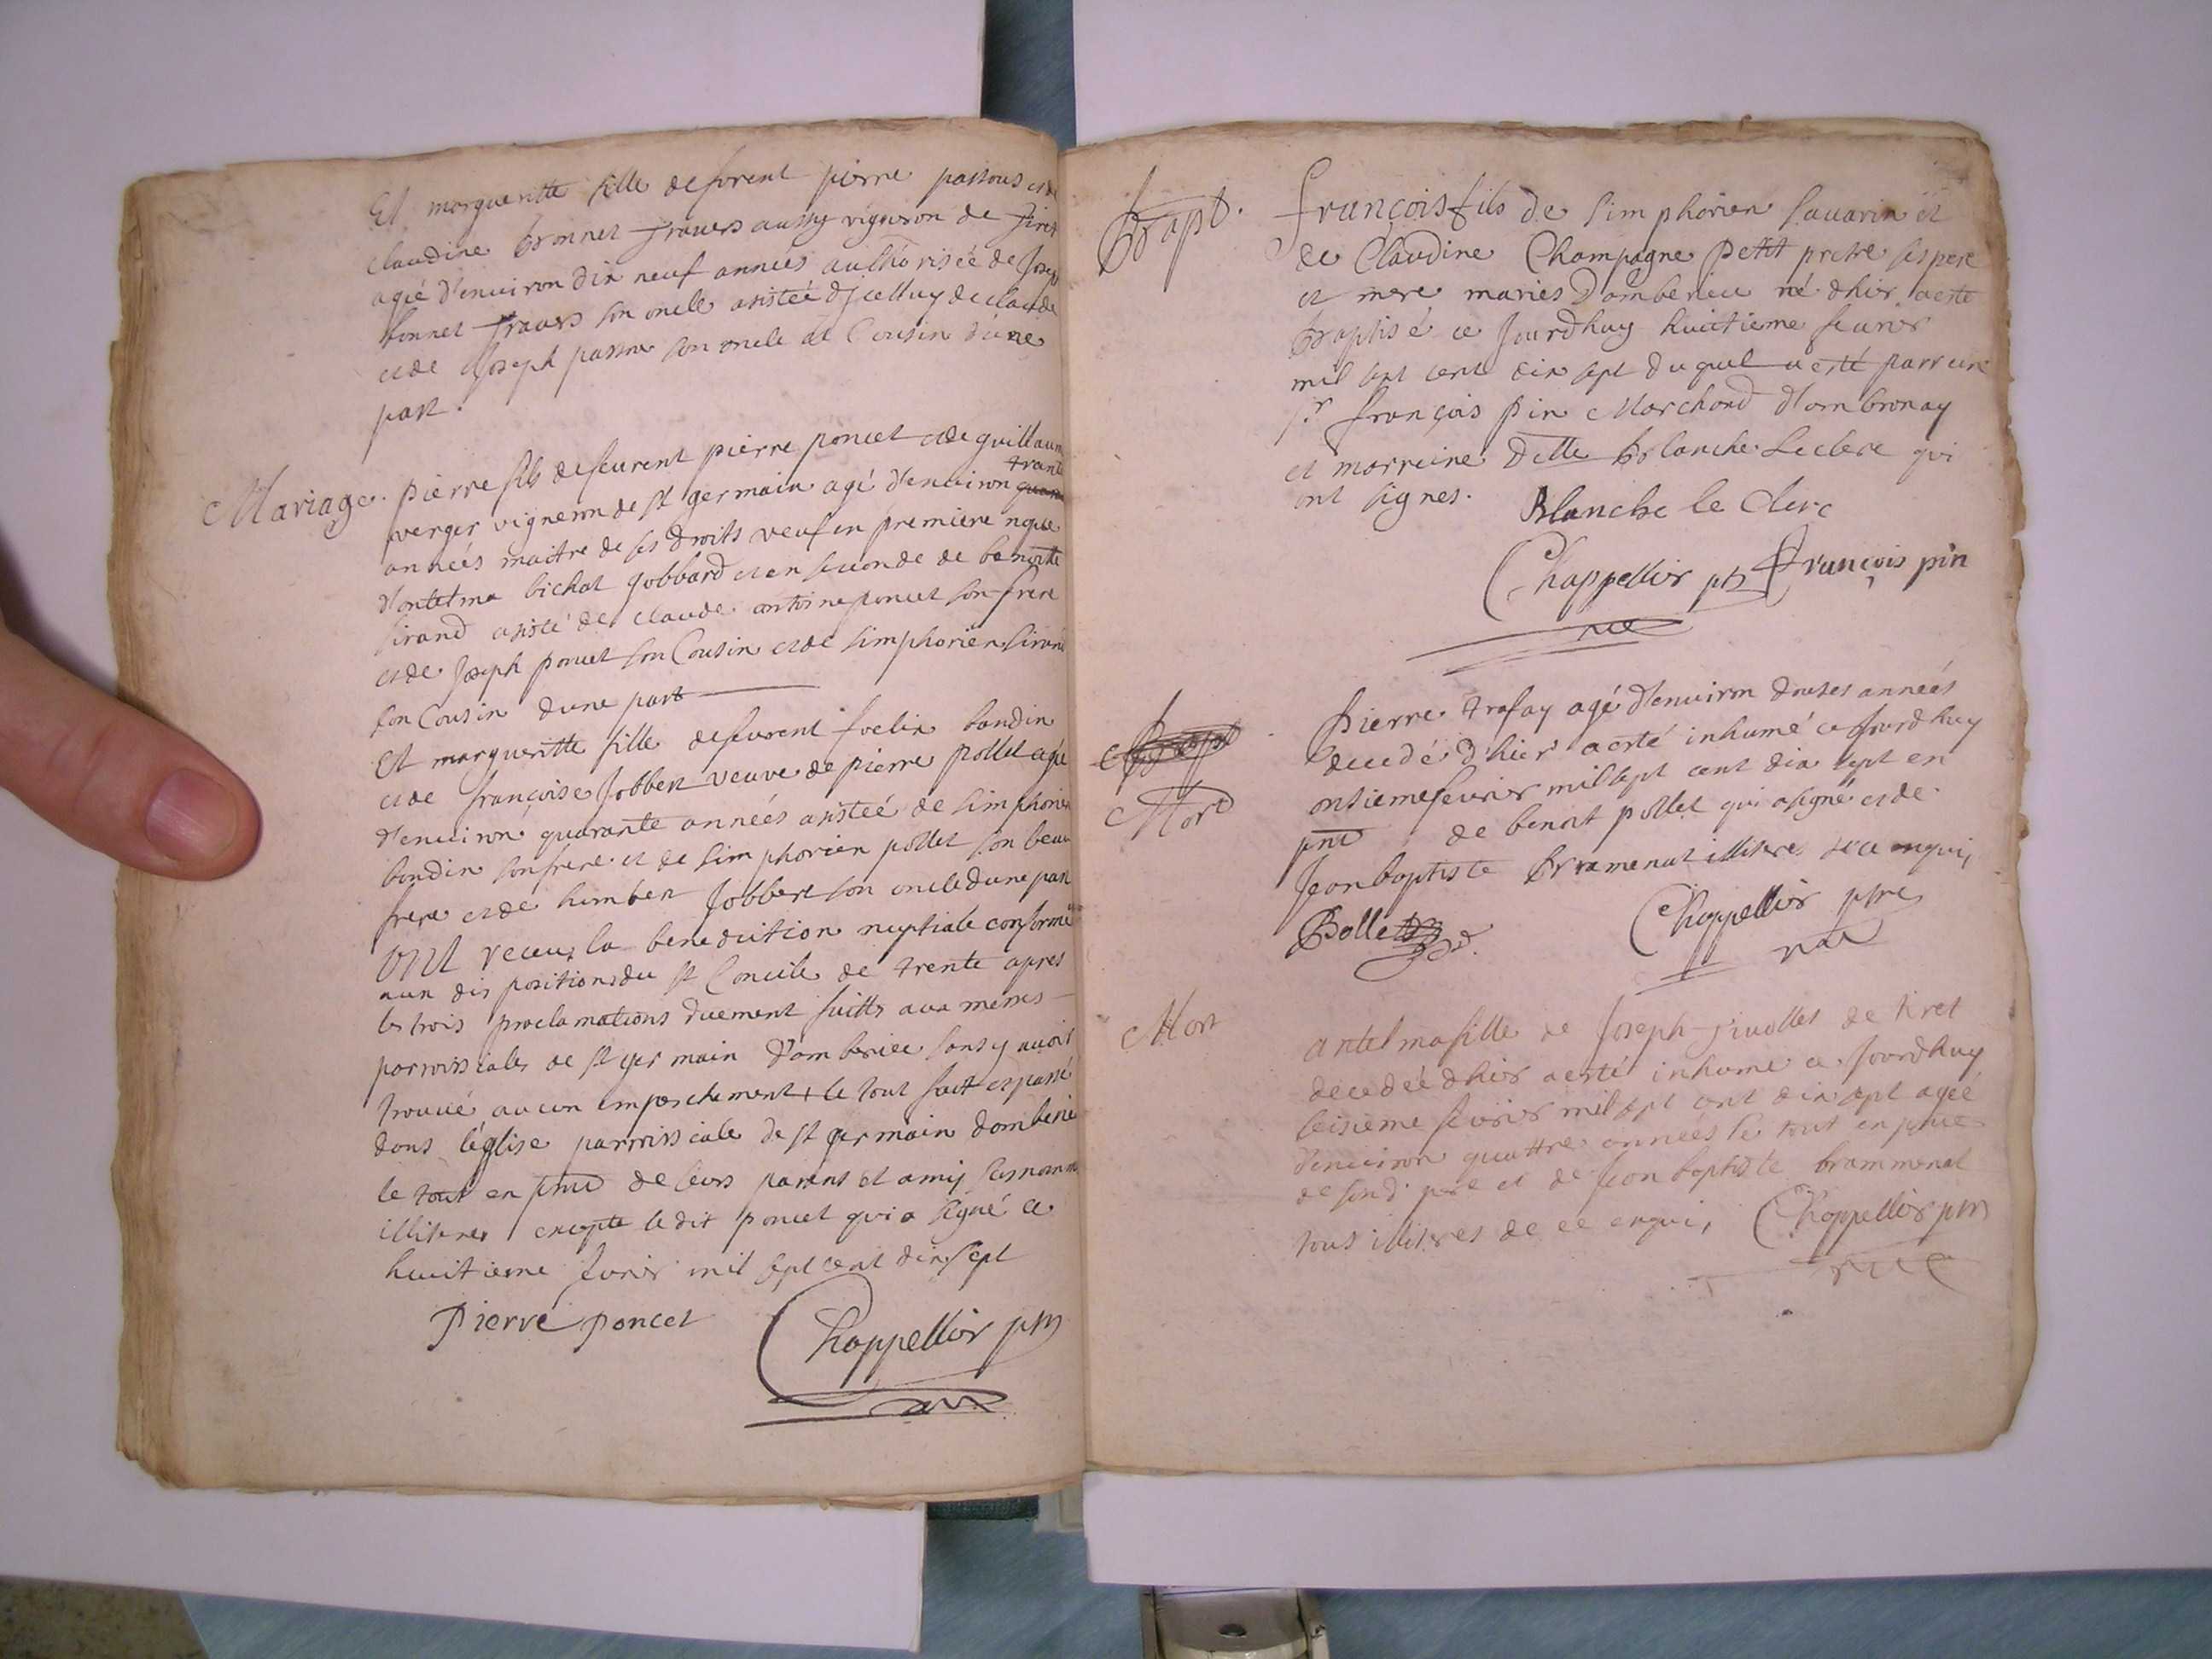 Et margueritte fille de furent pierre passous et de
claudine bonnet Travers aussy vigneron de Tiret
agée d'environ dix neuf années authorisée de Joseph
bonnet Travers son oncle asistée d'Icelluy de claude
et de Joseph passou son oncle et Cousin dune
part.
Mariage. pierre fils de feurent pierre poncet et de guillaum
verger vigneron de st germain agé d'environ quaran trante
années maitre de ses droits veuf en premiere nopce
d'antelma bichat gobbard et en seconde de benoite
sirand asisté de claude antoine poncet son frere
et de Joseph poncet son Cousin et de simphorien sirand
son Cousin dune part
Et margueritte fille de feurent foelix bondin
et de françoise Jobbert veuve de pierre pollet agée
d'environ quarante années asistée de simphorien
bondin son frere et de simphorien pollet son beau
frere et de humbert Jobbert son oncle dune part
ONt receus la benediction nuptiale conforme
aux dis positions du st Concile de trente apres
les trois proclamations duement faitts aux messes
parroissiales de st germain d'amberieu sans y avoir
trouvé aucun empeschement & le tout fait et passé
dans l'église parroissiale de st germain damberie
le tout en pnce de leurs parens et amis susnomm
illiteres excepte ledit poncet qui a signé ce
huitieme fevrier mil sept cent dix sept
Pierre poncet Chappellier ptr
Bapt. françois fils de simphorien savarin et
de Claudine Champagne petit pretre ses pere
et mere maries d'amberieu né dhier a esté
baptisé ce jourdhuy huitieme feuvrier
mil sept cent dix sept duquel a esté parrein
sr françois pin Marchand d'ambronay
et marreine Delle blanche Leclerc qui
ont signes. Blanche le Clerc
Chappellier ptr françois pin
vice
Bapt
Mort
Pierre trafay agé d'environ douses années
decedé d'hier a esté inhumé ce jourdhuy
onsieme feuvrier mil sept cent dix sept en
pnce de benoit pollet qui a signé et de
Jean baptiste bramenat illitere de ce enquis,
Pollet Chappellier ptre
vice
Mort
antelma fille de Joseph Tivollet de tiret
decedée dhier a esté inhume ce Jourdhuy
seisieme fevrier mil sept cent dix sept agée
d'environ quattre années le tout en pnce
de sond. pere et de Jean baptiste brammenat
tous illiteres de ce enquis, Chappellier ptr
vice